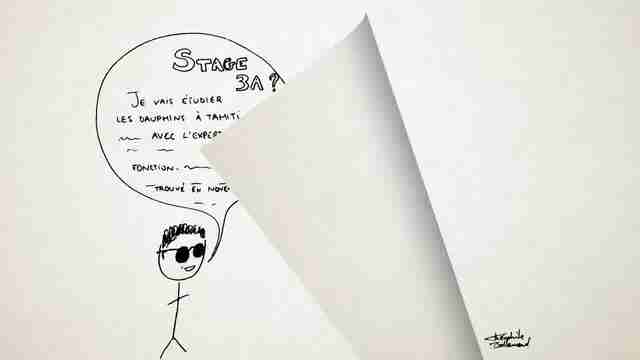 STAGE
3A ?
JE VAIS ÉTUDIER
LES DAUPHINS À TAHITI
AVEC L'EXPERT
FONCTION.
TROUVÉ EN NOVE